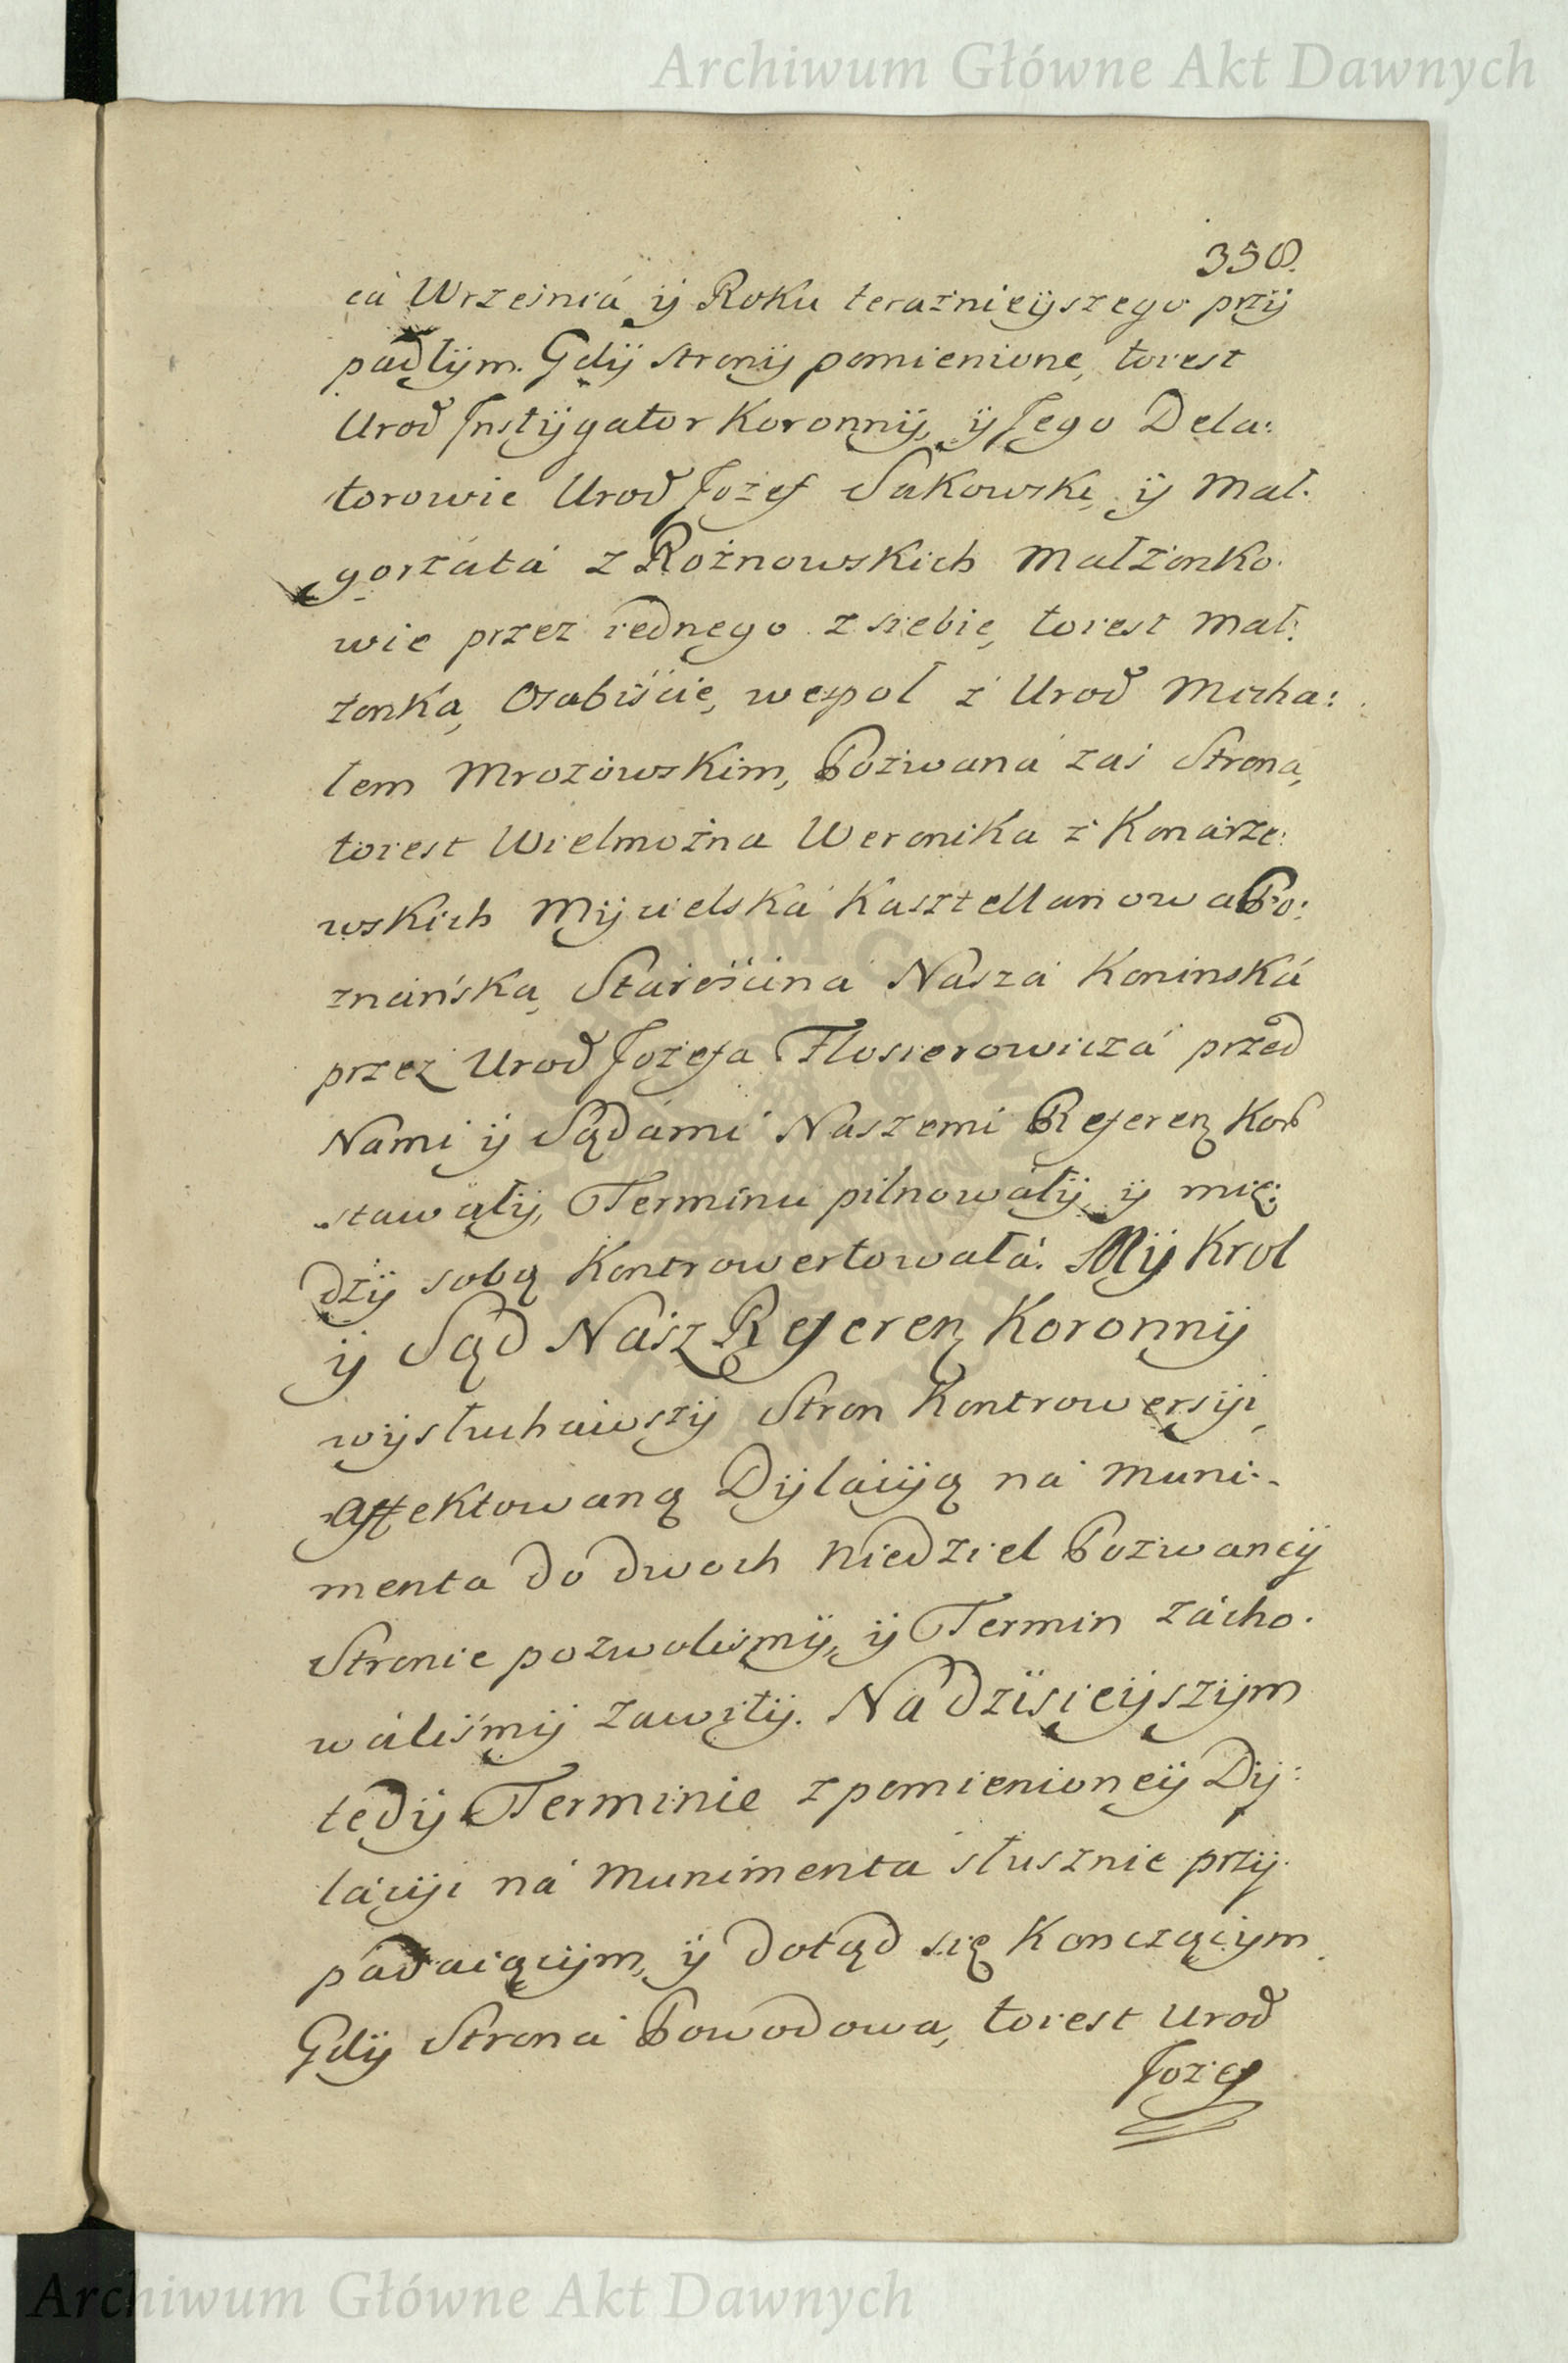 Archiwum Główne Akt Dawnych
358.
cá Wrzesniá ÿ Roku teraznieÿszego przÿ
padłÿm. Gdÿ Stronÿ pomienione, toiest
Urod Jnstÿgator Koronnÿ, ÿ Jego Dela:
torowie Urod Jozef Sakowski, ÿ Mał:
gorzatá z Rożnowskich Małżonko:
wie przez iednego z siebie, toiest Mał:
żonka, Osobiście, wespoł z Urod Micha:
łem Mrozowskim, Pozwana zaś Strona,
toiest Wielmożna Weronika z Konarze:
wskich Mÿcielska Kasztellanowa Po:
znańska, Starościna Nasza Koninská
przez Urod Jozefa Flosierowiczá przed
Nami ÿ Sądámi Naszemi Referen Kor
stawałÿ, Terminu pilnowałÿ, ÿ mię:
dzÿ sobą Kontrowertowałá. Mÿ Krol
ÿ Sąd Nasz Referen Koronnÿ
wÿsłuchawszÿ Stron Kontrowersÿi,
affektowaną Dÿlacÿą ná Muni:
menta do dwoch Niedziel Pozwaneÿ
Stronie pozwolismÿ, ÿ Termin zácho:
wáliśmÿ zawitÿ. Ná dzisieÿszÿm
tedÿ Terminie z pomienioneÿ Dÿ:
lácÿi ná Munimenta słusznie przÿ:
padaiącÿm, ÿ dotąd się Konczącÿm
Gdÿ Strona Powodowa, toiest Urod
Jozef
Archiwum Główne Akt Dawnych